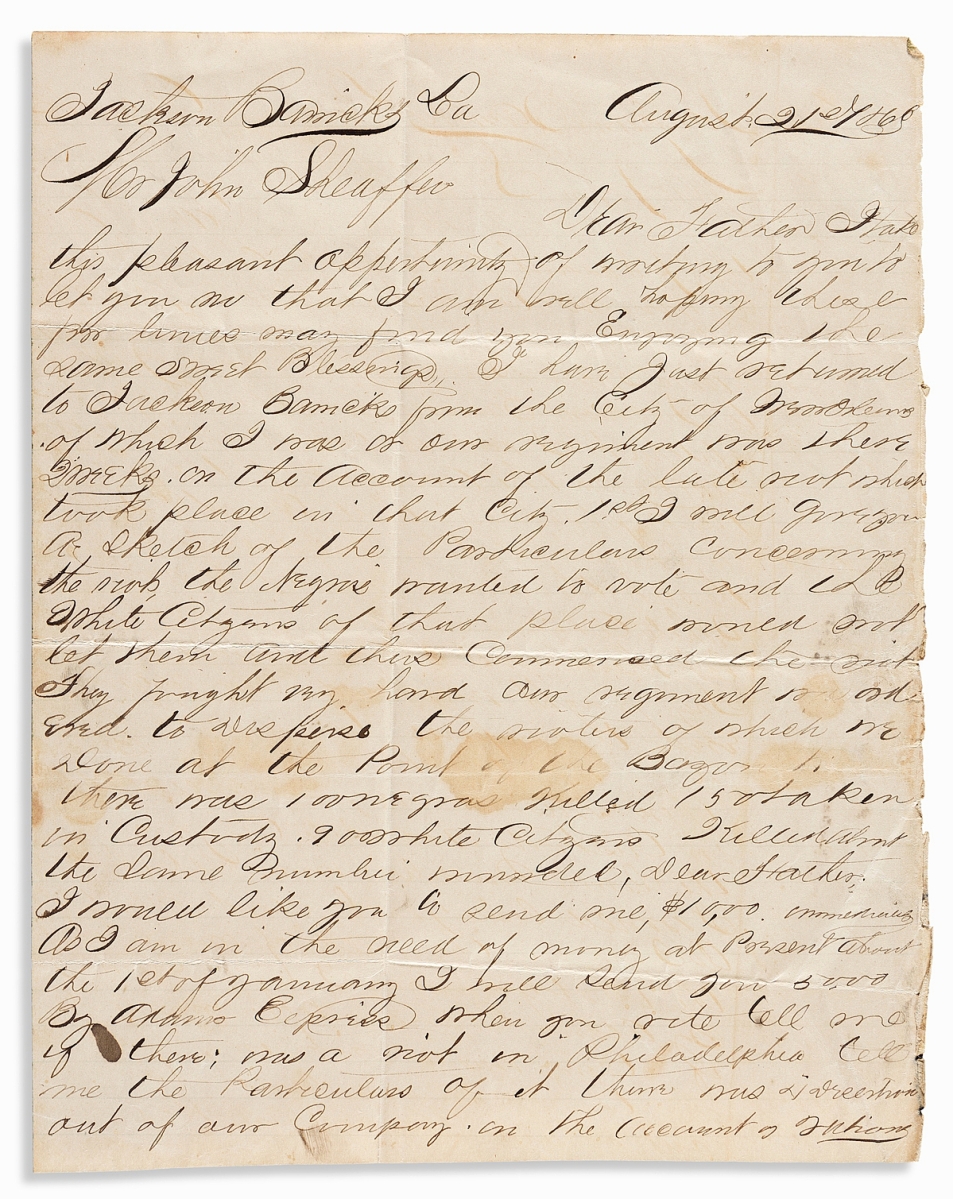 Jackson Barricks La August. 21st 1866
Mr John Sheaffer
Dear Father I take
this pleasant oppertunity of writing to you to
let you no that I am well hoping these
few lines may find you Enjoying the
same sweet Blessings, I have Just returned
to Jackson Barricks from the City of New Orleans
of which I was or our regiment was there
weeks. on the Account of the late riot which
took place in that City. 1st I will give you
A sketch of the Particulars concerning
the riot, the Negros wanted to vote and the
White Citizens of that place would not
let them and thus Commensed the riot
They fought very hard our regiment ord
ered. to disperse the rioters of which we
Done at the Point of the
there was 100 negros Killed 150 taken
in Custody. 9 00 White Citizens Killed about
the Same Number wounded, Dear Father.
I would like you to send me, $10,00. immediately
As I am in the need of money at Present about
the 1st of January I will Send you 5000
By Adams Express when you rite tell me
if there; was a riot in Philadelphia tell
me the Particulars of it there was
out of our Company. on the account of rations